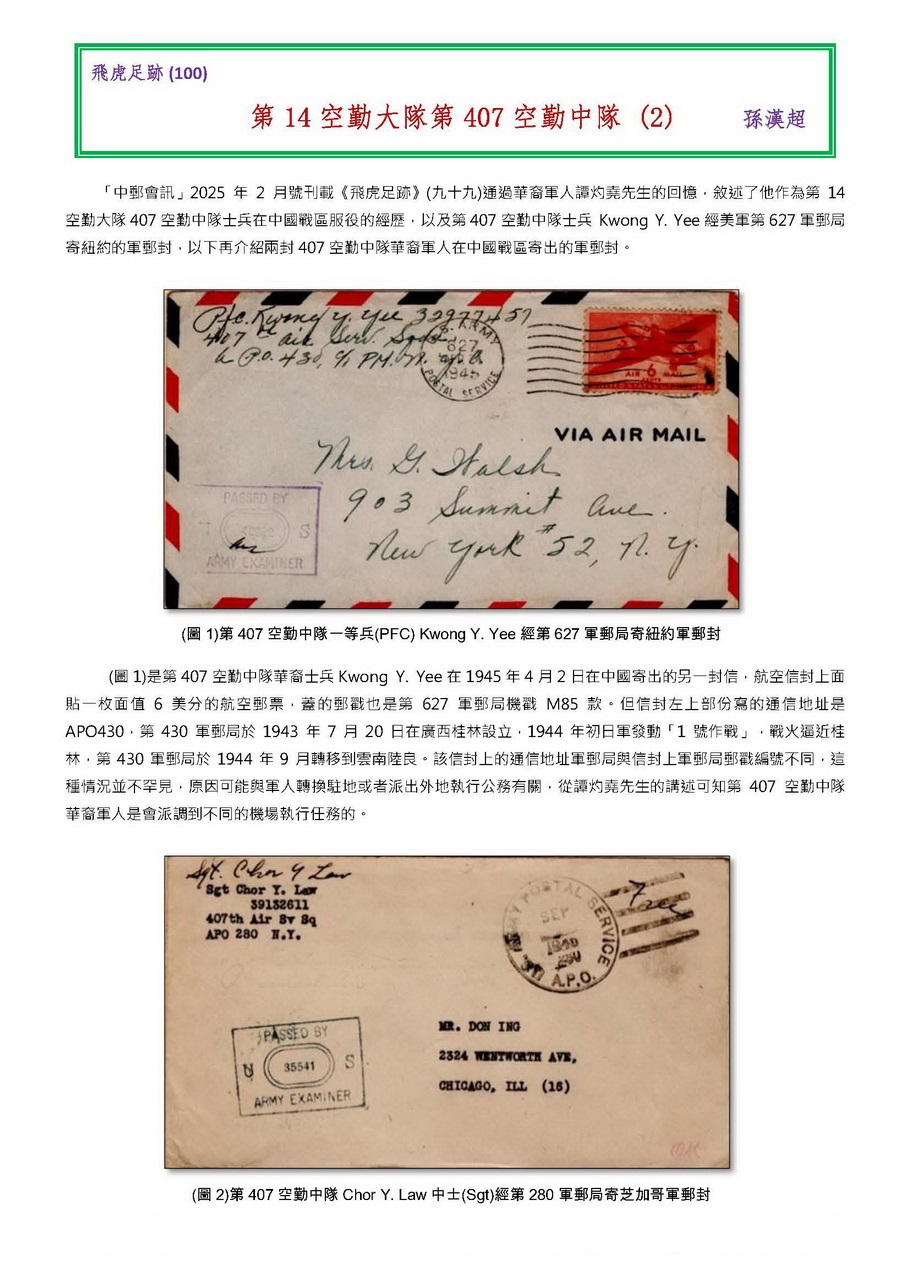 飛虎足跡 (100)
第 14 空勤大隊第 407 空勤中隊 (2)
孫漢超
「中郵會訊」2025 年 2 月號刊載《飛虎足跡》(九十九)通過華裔軍人譚灼堯先生的回憶，敘述了他作為第 14
空勤大隊 407 空勤中隊士兵在中國戰區服役的經歷，以及第 407 空勤中隊士兵 Kwong Y. Yee 經美軍第 627 軍郵局
寄紐約的軍郵封，以下再介紹兩封 407 空勤中隊華裔軍人在中國戰區寄出的軍郵封。
Pfc. Kwong Y. Yee 32977457
407th Air Serv. Sqd.
A.P.O. 430, c/o P.M. N.Y.
U.S. ARMY
627
1945
POSTAL SERVICE
AIR 6 MAIL
CENTS
UNITED STATES OF AMERICA
VIA AIR MAIL
Mrs. G. Walsh
903 Summit Ave.
New York #52, N.Y.
PASSED BY
S
ARMY EXAMINER
(圖 1)第 407 空勤中隊一等兵(PFC) Kwong Y. Yee 經第 627 軍郵局寄紐約軍郵封
(圖 1)是第 407 空勤中隊華裔士兵 Kwong Y. Yee 在 1945 年 4 月 2 日在中國寄出的另一封信，航空信封上面
貼一枚面值 6 美分的航空郵票，蓋的郵戳也是第 627 軍郵局機戳 M85 款。但信封左上部份寫的通信地址是
APO430，第 430 軍郵局於 1943 年 7 月 20 日在廣西桂林設立，1944 年初日軍發動「1 號作戰」，戰火逼近桂
林，第 430 軍郵局於 1944 年 9 月轉移到雲南陸良。該信封上的通信地址軍郵局與信封上軍郵局郵戳編號不同，這
種情況並不罕見，原因可能與軍人轉換駐地或者派出外地執行公務有關，從譚灼堯先生的講述可知第 407 空勤中隊
華裔軍人是會派調到不同的機場執行任務的。
Sgt. Chor Y Law
Sgt Chor Y. Law
39132611
407th Air Sv Sq
APO 280 N.Y.
ARMY POSTAL SERVICE
SEP
1945
A.P.O.
Free
PASSED BY
U 35541 S
ARMY EXAMINER
MR. DON ING
2324 WENTWORTH AVE,
CHICAGO, ILL (16)
(圖 2)第 407 空勤中隊 Chor Y. Law 中士(Sgt)經第 280 軍郵局寄芝加哥軍郵封